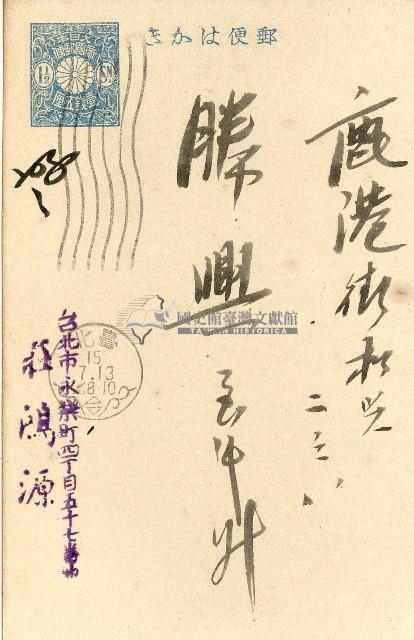 郵便はかき
大日本
帝國郵便
1½ Sn
壹錢五厘
鹿港街
二三八
勝興
國史館臺灣文獻館
TAIWAN HISTORICA
臺北
15
7.13
8-10
台北市永樂町四丁目五十七番地
鴻源